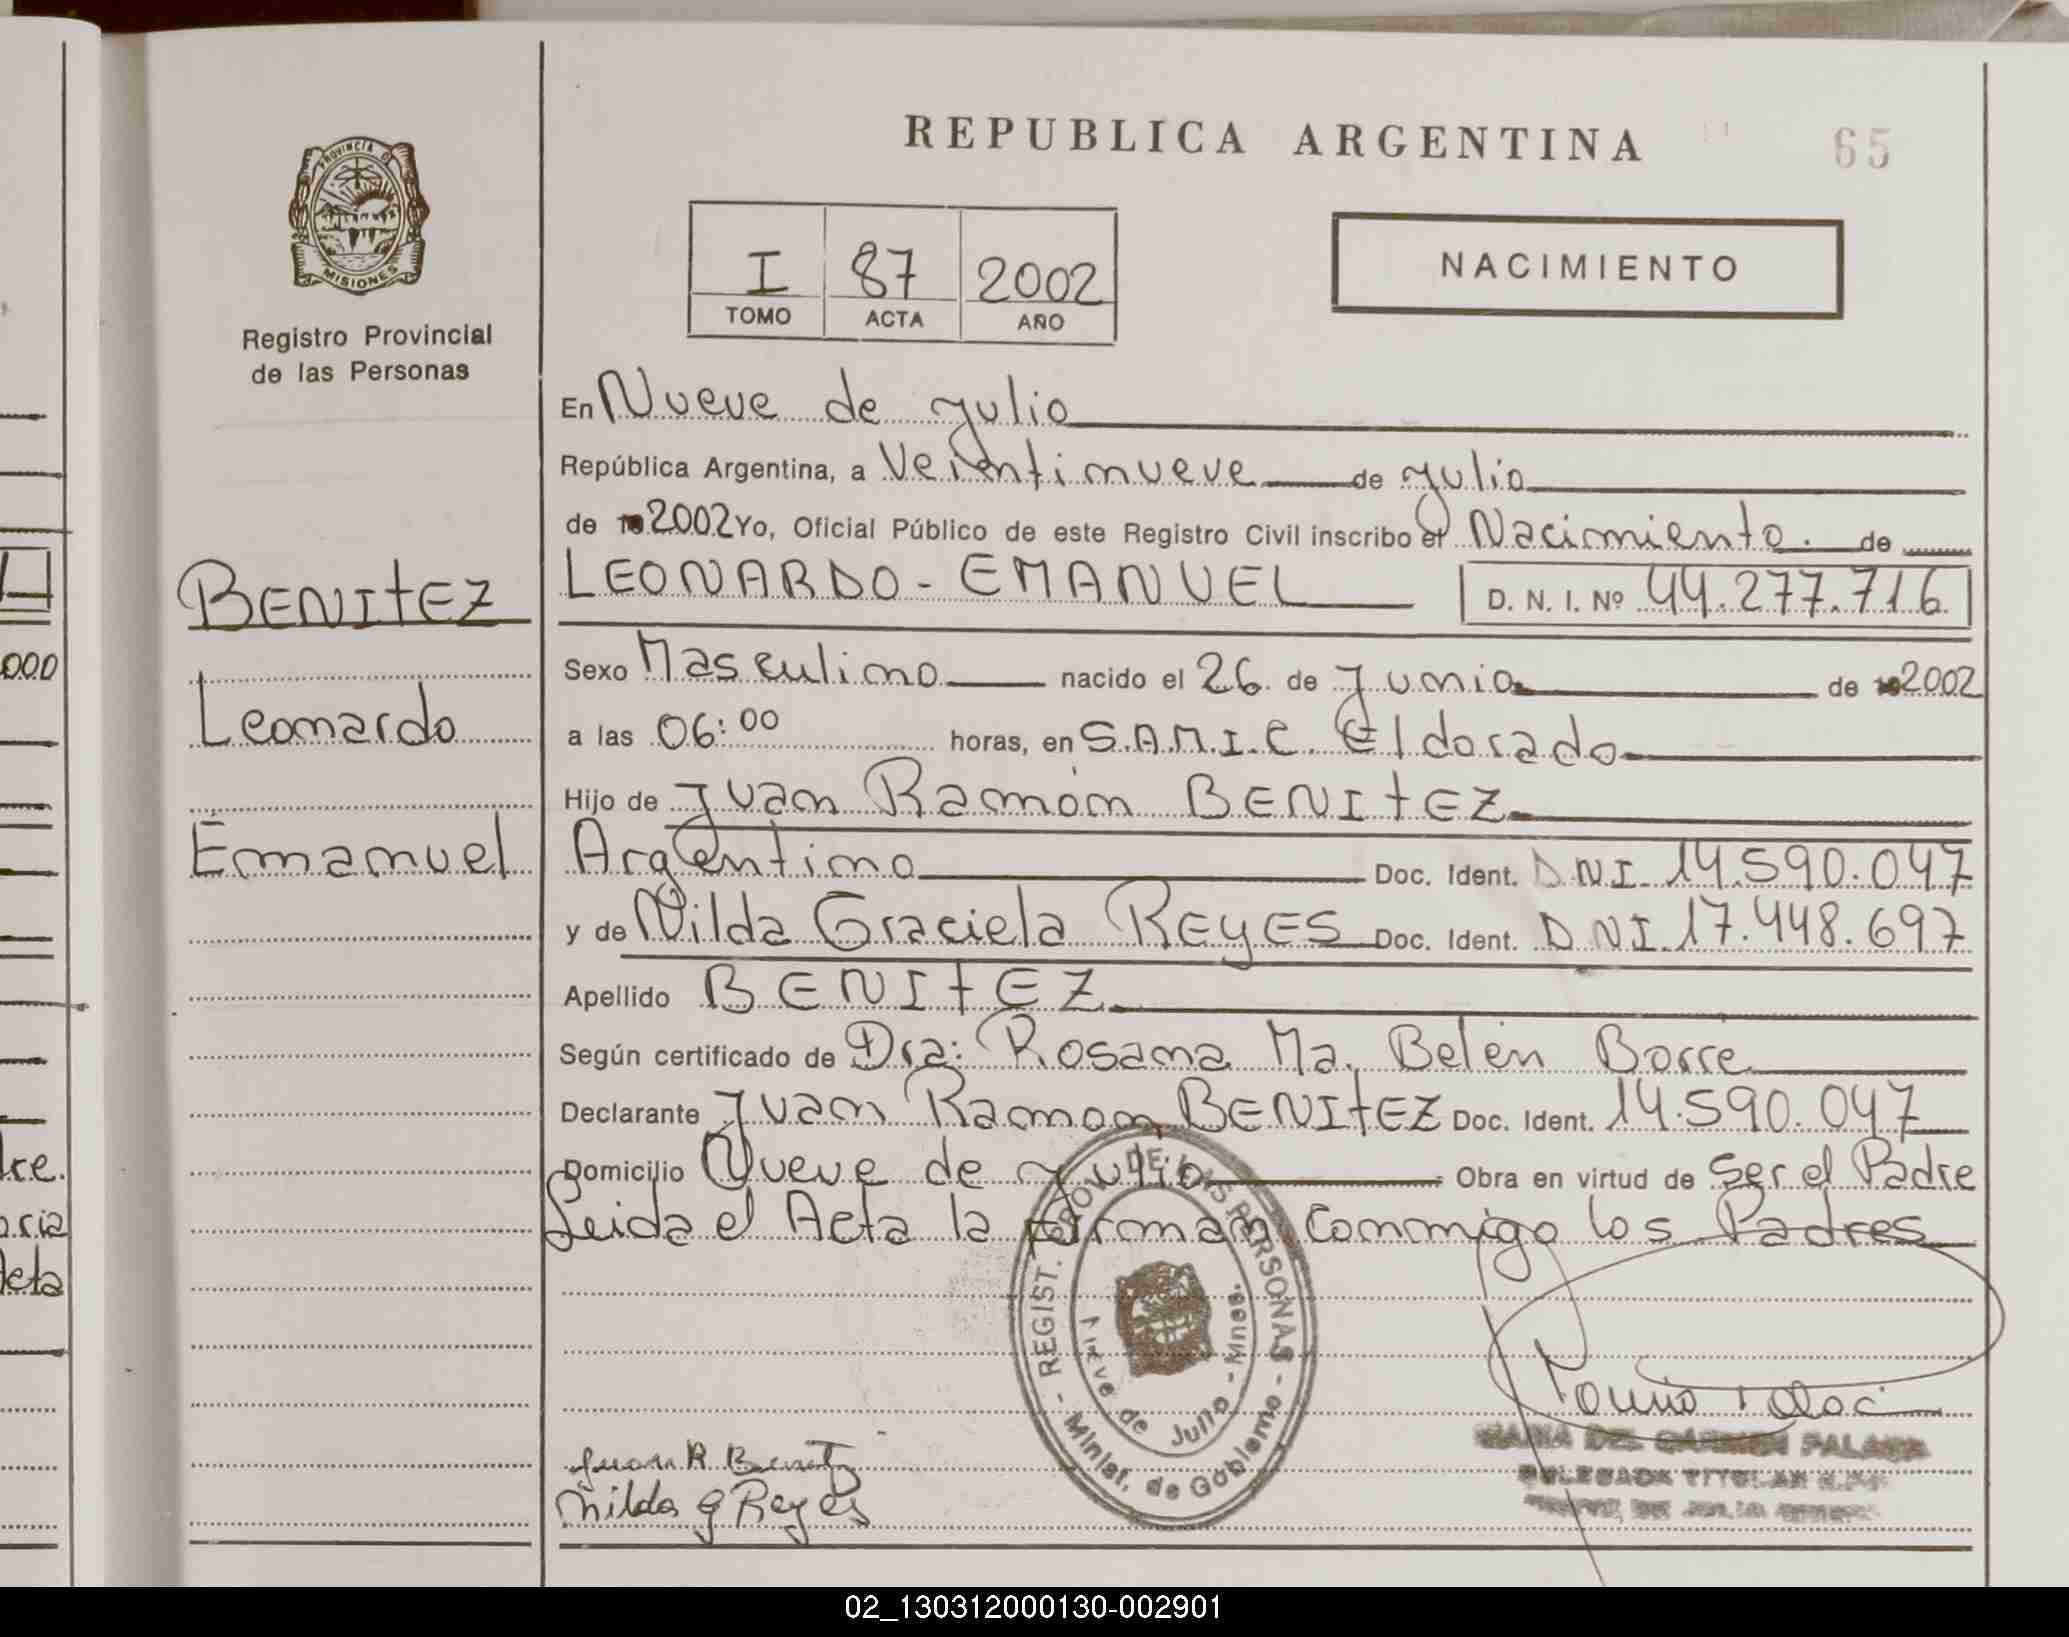 REPUBLICA ARGENTINA
65
PROVINCIA D
MISIONES
Registro Provincial
de las Personas
I 87 2002
TOMO ACTA AÑO
NACIMIENTO
En Nueve de Julio
República Argentina, a Veintinueve de Julio
de 2002 Yo, Oficial Público de este Registro Civil inscribo el Nacimiento. de
BENITEZ
LEONARDO - EMANUEL D. N. I. Nº 44.277.716
000
Sexo Masculino nacido el 26 de Junio de 2002
Leonardo
a las 06:00 horas, en S.A.M.I.C. Eldorado
Hijo de Juan Ramón BENITEZ
Emanuel
Argentino Doc. Ident. DNI. 14.590.047
y de Nilda Graciela REYES Doc. Ident. DNI. 17.448.697
Apellido BENITEZ
Según certificado de Dra: Rosana Ma. Belén Borre
Declarante Juan Ramon BENITEZ Doc. Ident. 14.590.047
Domicilio Nueve de Julio Obra en virtud de Ser el Padre
Leida el Acta la firman conmigo los Padres
REGIST. PROV. DE LAS PERSONAS
Nueve de Julio - Mnes.
- Minist. de Gobierno -
Juan R Benitez
Nilda G Reyes
MARIA DEL CARMEN
DELEGADA TITULAR
02_130312000130-002901